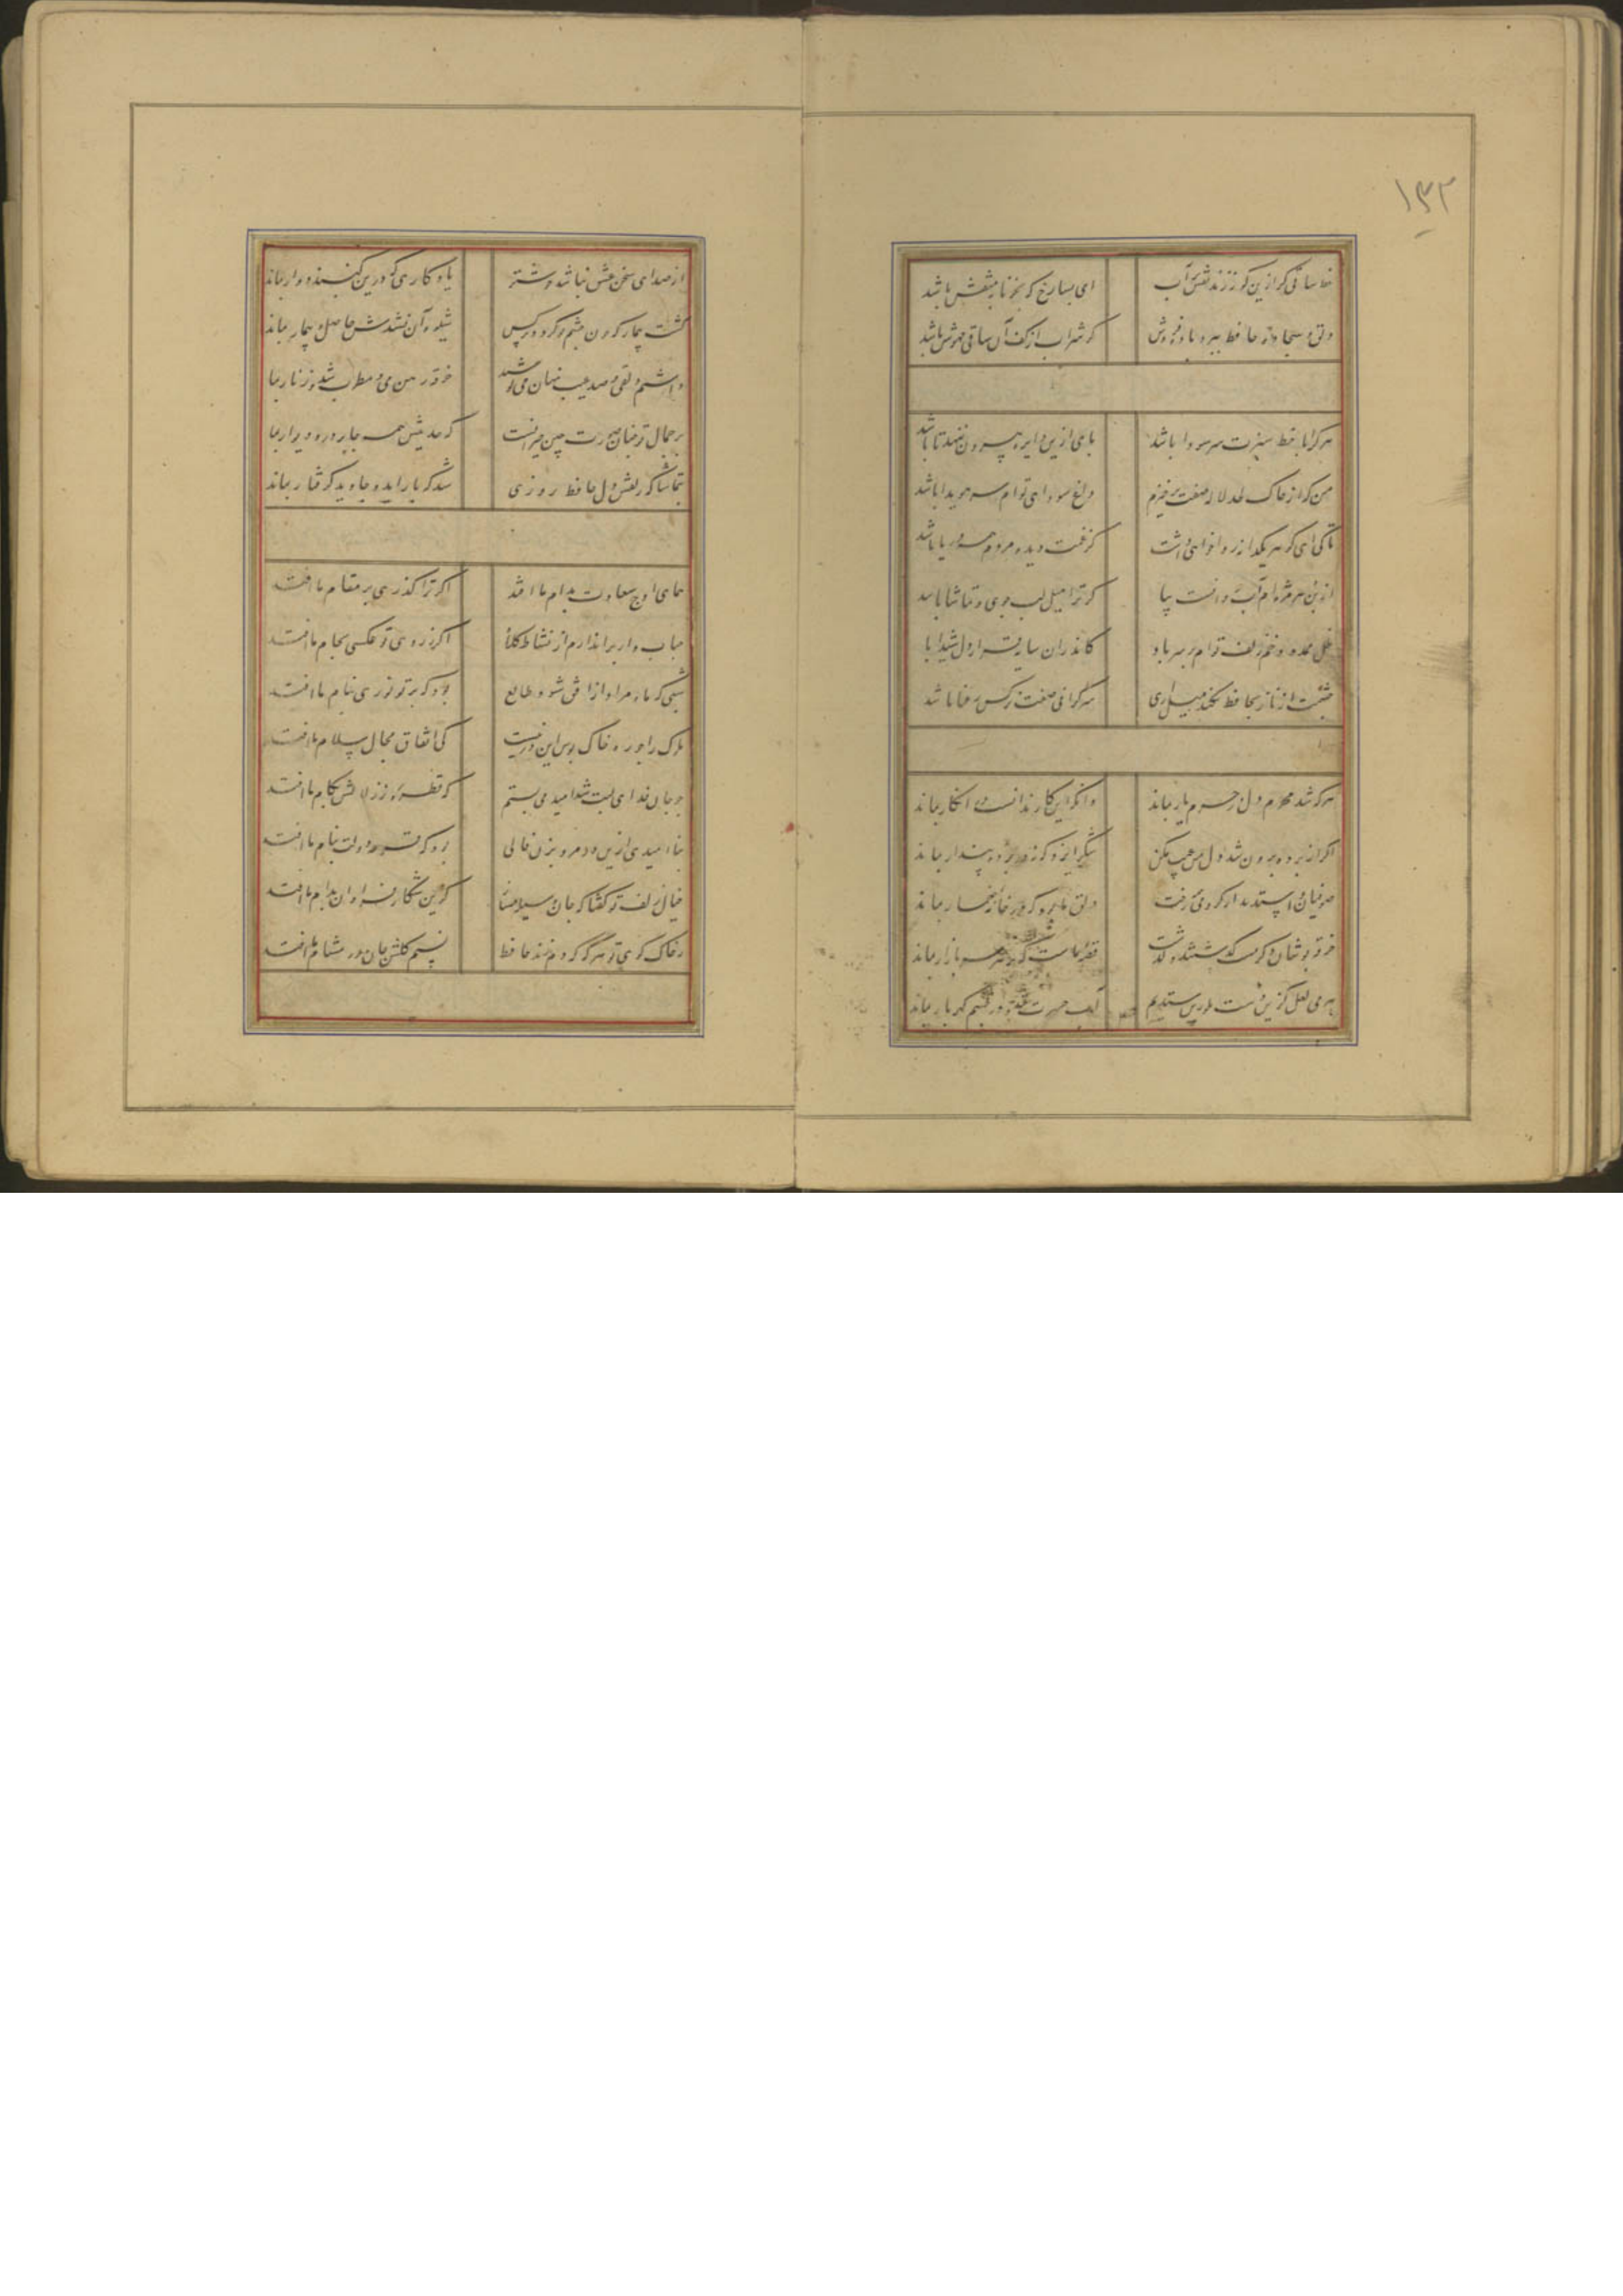 ۱۳۲
خط ساقی کر ازین کونه زند نقش بر آب
ای بسا رخ که بخونابه منقش باشد
دلق و سجاده حافظ ببرد باده فروش
کر شراب از کف آن ساقی مهوش باشد
هر کرا با خط سبزت سر سودا باشد
پای ازین دایره بیرون ننهد تا باشد
من که از خاک لحد لاله صفت برخیزم
داغ سودای توام سر سویدا باشد
تا کی ای کوهر یکدانه روا خواهی داشت
کز غمت دیده مردم همه دریا باشد
از بن هر مژه ام آب روانست بیا
کر ترا میل لب جوی و تماشا باشد
ظل ممدود خم زلف توام بر سر باد
کاندران سایه قرار دل شیدا با
چشمت از ناز بحافظ نکند میل آری
سرکرانی صفت نرکس رعنا باشد
هر که شد محرم دل در حرم یار بماند
وانکه این کار ندانست در انکار بماند
اکر از پرده برون شد دل من عیب مکن
شکر ایزد که نه در پرده پندار بماند
صوفیان واستدند از کرو می رخت
دلق ما بود که در خانه خمار بماند
خرقه پوشان دکر مست کذشتند و کذشت
قصه ماست که بر هر سر بازار بماند
هر می لعل کزین دست بلورین ستدیم
آب حسرت شد و در چشم کهر بار بماند
از صدای سخن عشق نباشد خوشتر
یادکاری که درین کنبد دوار بماند
کشت بیمار که چون چشم تو کردد نرکس
شیوه آن نشدش حاصل و بیمار بماند
داشتم دلقی و صد عیب نهان می پوشید
خرقه رهن می و مطرب شد و زنار بما
بر جمال تو چنان صورت چین حیرانست
که حدیثش همه جا بر در و دیوار بما
بتماشاکه زلفش دل حافظ روزی
شد که باز آید و جاوید کرفتار بماند
همای اوج سعادت بدام ما افتد
اکر ترا کذری بر مقام ما افتد
حباب وار براندازم از نشاط کلاه
اکر ز روی تو عکسی بجام ما افتد
شبی که ماه مراد از افق شود طالع
بود که پرتو نوری ببام ما افتد
ملوک را چو ره خاک بوس این در نیست
کی اتفاق مجال سلام ما افتد
چو جان فدای لبت شد امید می بستم
که قطره ز زلالش بکام ما افتد
بناامیدی ازین در مرو بزن فالی
بود که قرعه دولت بنام ما افتد
خیال زلف تو کفتا که جان وسیله مساز
کزین شکار فراوان بدام ما افتد
ز خاک کوی تو هر که که دم زند حافظ
نسیم کلشن جان در مشام ما افتد